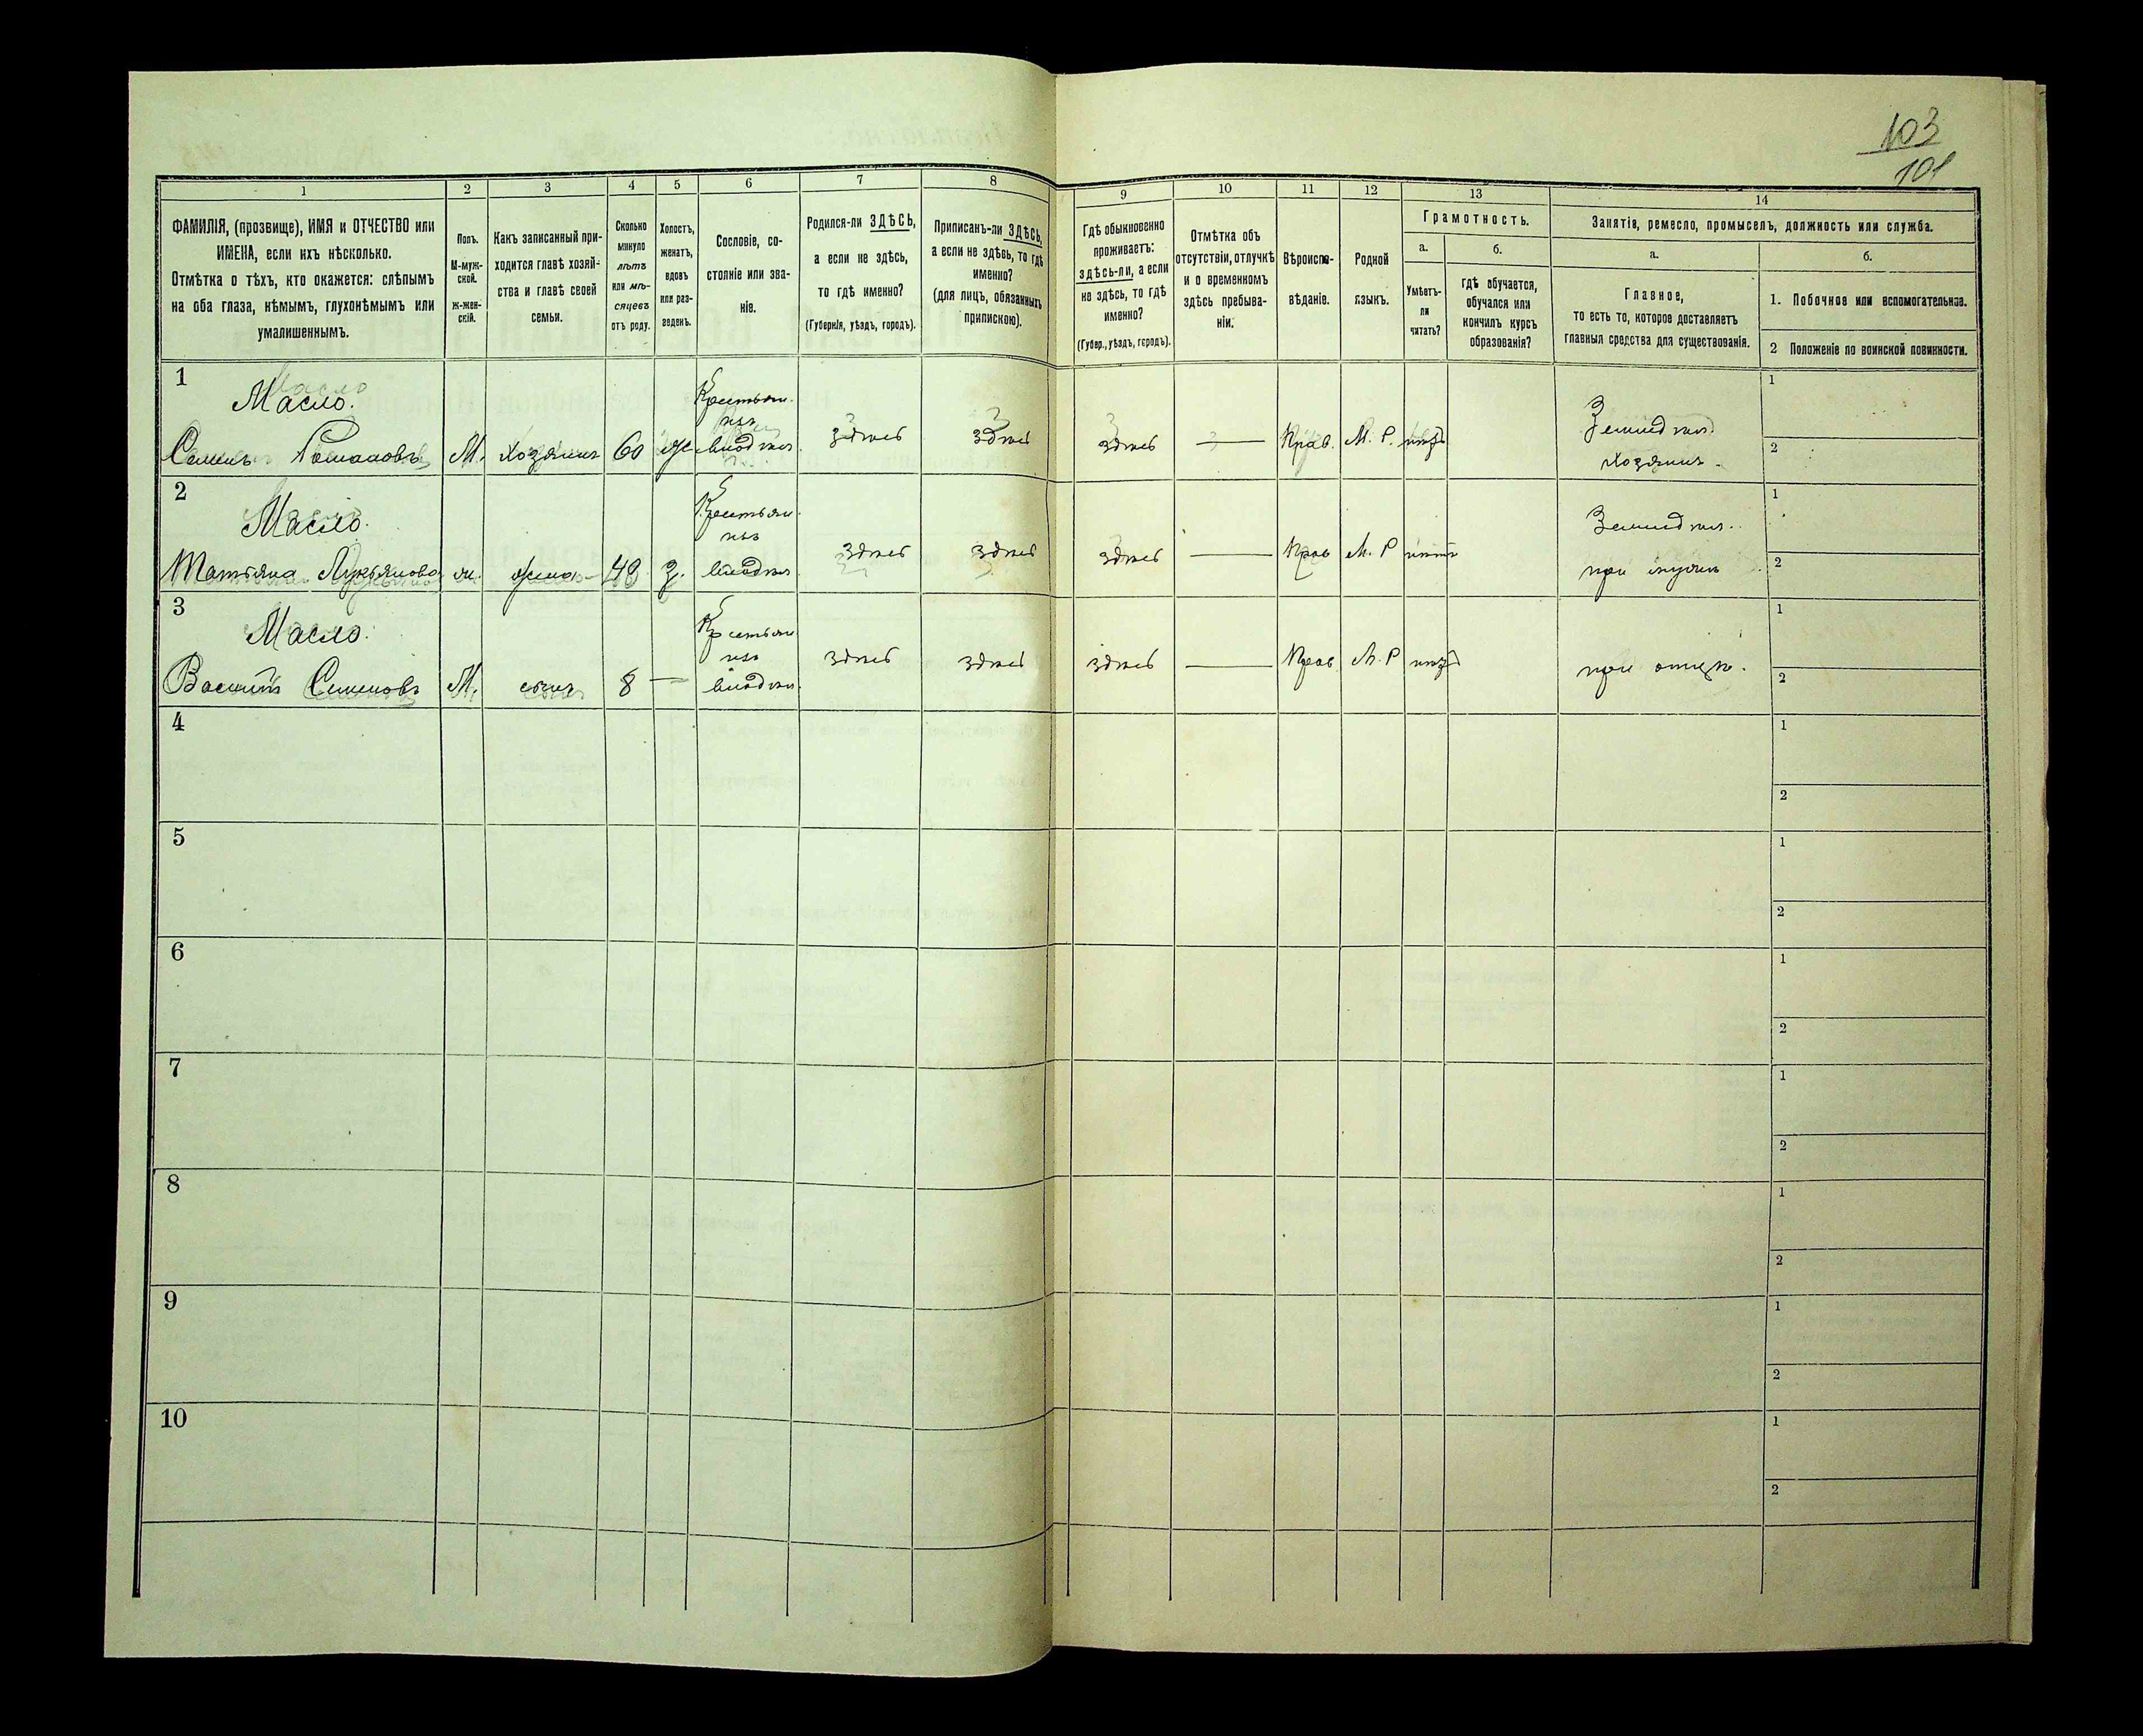 103
101
1
2
3
4
5
6
7
8
9
10
11
12
13
14
ФАМИЛІЯ, (прозвище), ИМЯ и ОТЧЕСТВО или
ИМЕНА, если ихъ нѣсколько.
Отмѣтка о тѣхъ, кто окажется: слѣпымъ
на оба глаза, нѣмымъ, глухонѣмымъ или
умалишеннымъ.
Полъ.
М-муж-
ской.
ж-жен-
скій.
Какъ записанный при-
ходится главѣ хозяй-
ства и главѣ своей
семьи.
Сколько
минуло
лѣтъ
или мѣ-
сяцевъ
отъ роду.
Холостъ,
женатъ,
вдовъ
или раз-
веденъ.
Сословіе, со-
стояніе или зва-
ніе.
Родился-ли ЗДѢСЬ,
а если не здѣсь,
то гдѣ именно?
(Губернія, уѣздъ, городъ).
Приписанъ-ли ЗДѢСЬ,
а если не здѣсь, то гдѣ
именно?
(для лицъ, обязанныхъ
припискою).
Гдѣ обыкновенно
проживаетъ:
здѣсь-ли, а если
не здѣсь, то гдѣ
именно?
(Губер., уѣздъ, городъ).
Отмѣтка объ
отсутствіи, отлучкѣ
и о временномъ
здѣсь пребыва-
ніи.
Вѣроиспо-
вѣданіе.
Родной
языкъ.
Грамотность.
а.
Умѣетъ-
ли
читать?
б.
гдѣ обучается,
обучался или
кончилъ курсъ
образованія?
Занятія, ремесло, промыселъ, должность или служба.
а.
Главное,
то есть то, которое доставляетъ
главныя средства для существованія.
б.
1. Побочное или вспомогательное.
2 Положеніе по воинской повинности.
1
Масло.
Семенъ Романовъ
М.
хозяинъ
60
ж
Крестьян.
изъ
владѣл.
здѣсь
здѣсь
здѣсь
—
Прав.
М. Р.
нѣтъ
Землѣдѣл.
хозяинъ.
1
2
2
Масло.
Татьяна Лукьянова
ж.
жена
48
з.
Крестьян.
изъ
владѣл.
здѣсь
здѣсь
здѣсь
—
Прав
М. Р
нѣтъ
Землѣдѣл.
при мужѣ
1
2
3
Масло.
Василій Семеновъ
М.
сынъ
8
—
Крестьян
изъ
владѣл.
здѣсь
здѣсь
здѣсь
—
Прав
М. Р
нѣтъ
при отцѣ.
1
2
4
1
2
5
1
2
6
1
2
7
1
2
8
1
2
9
1
2
10
1
2